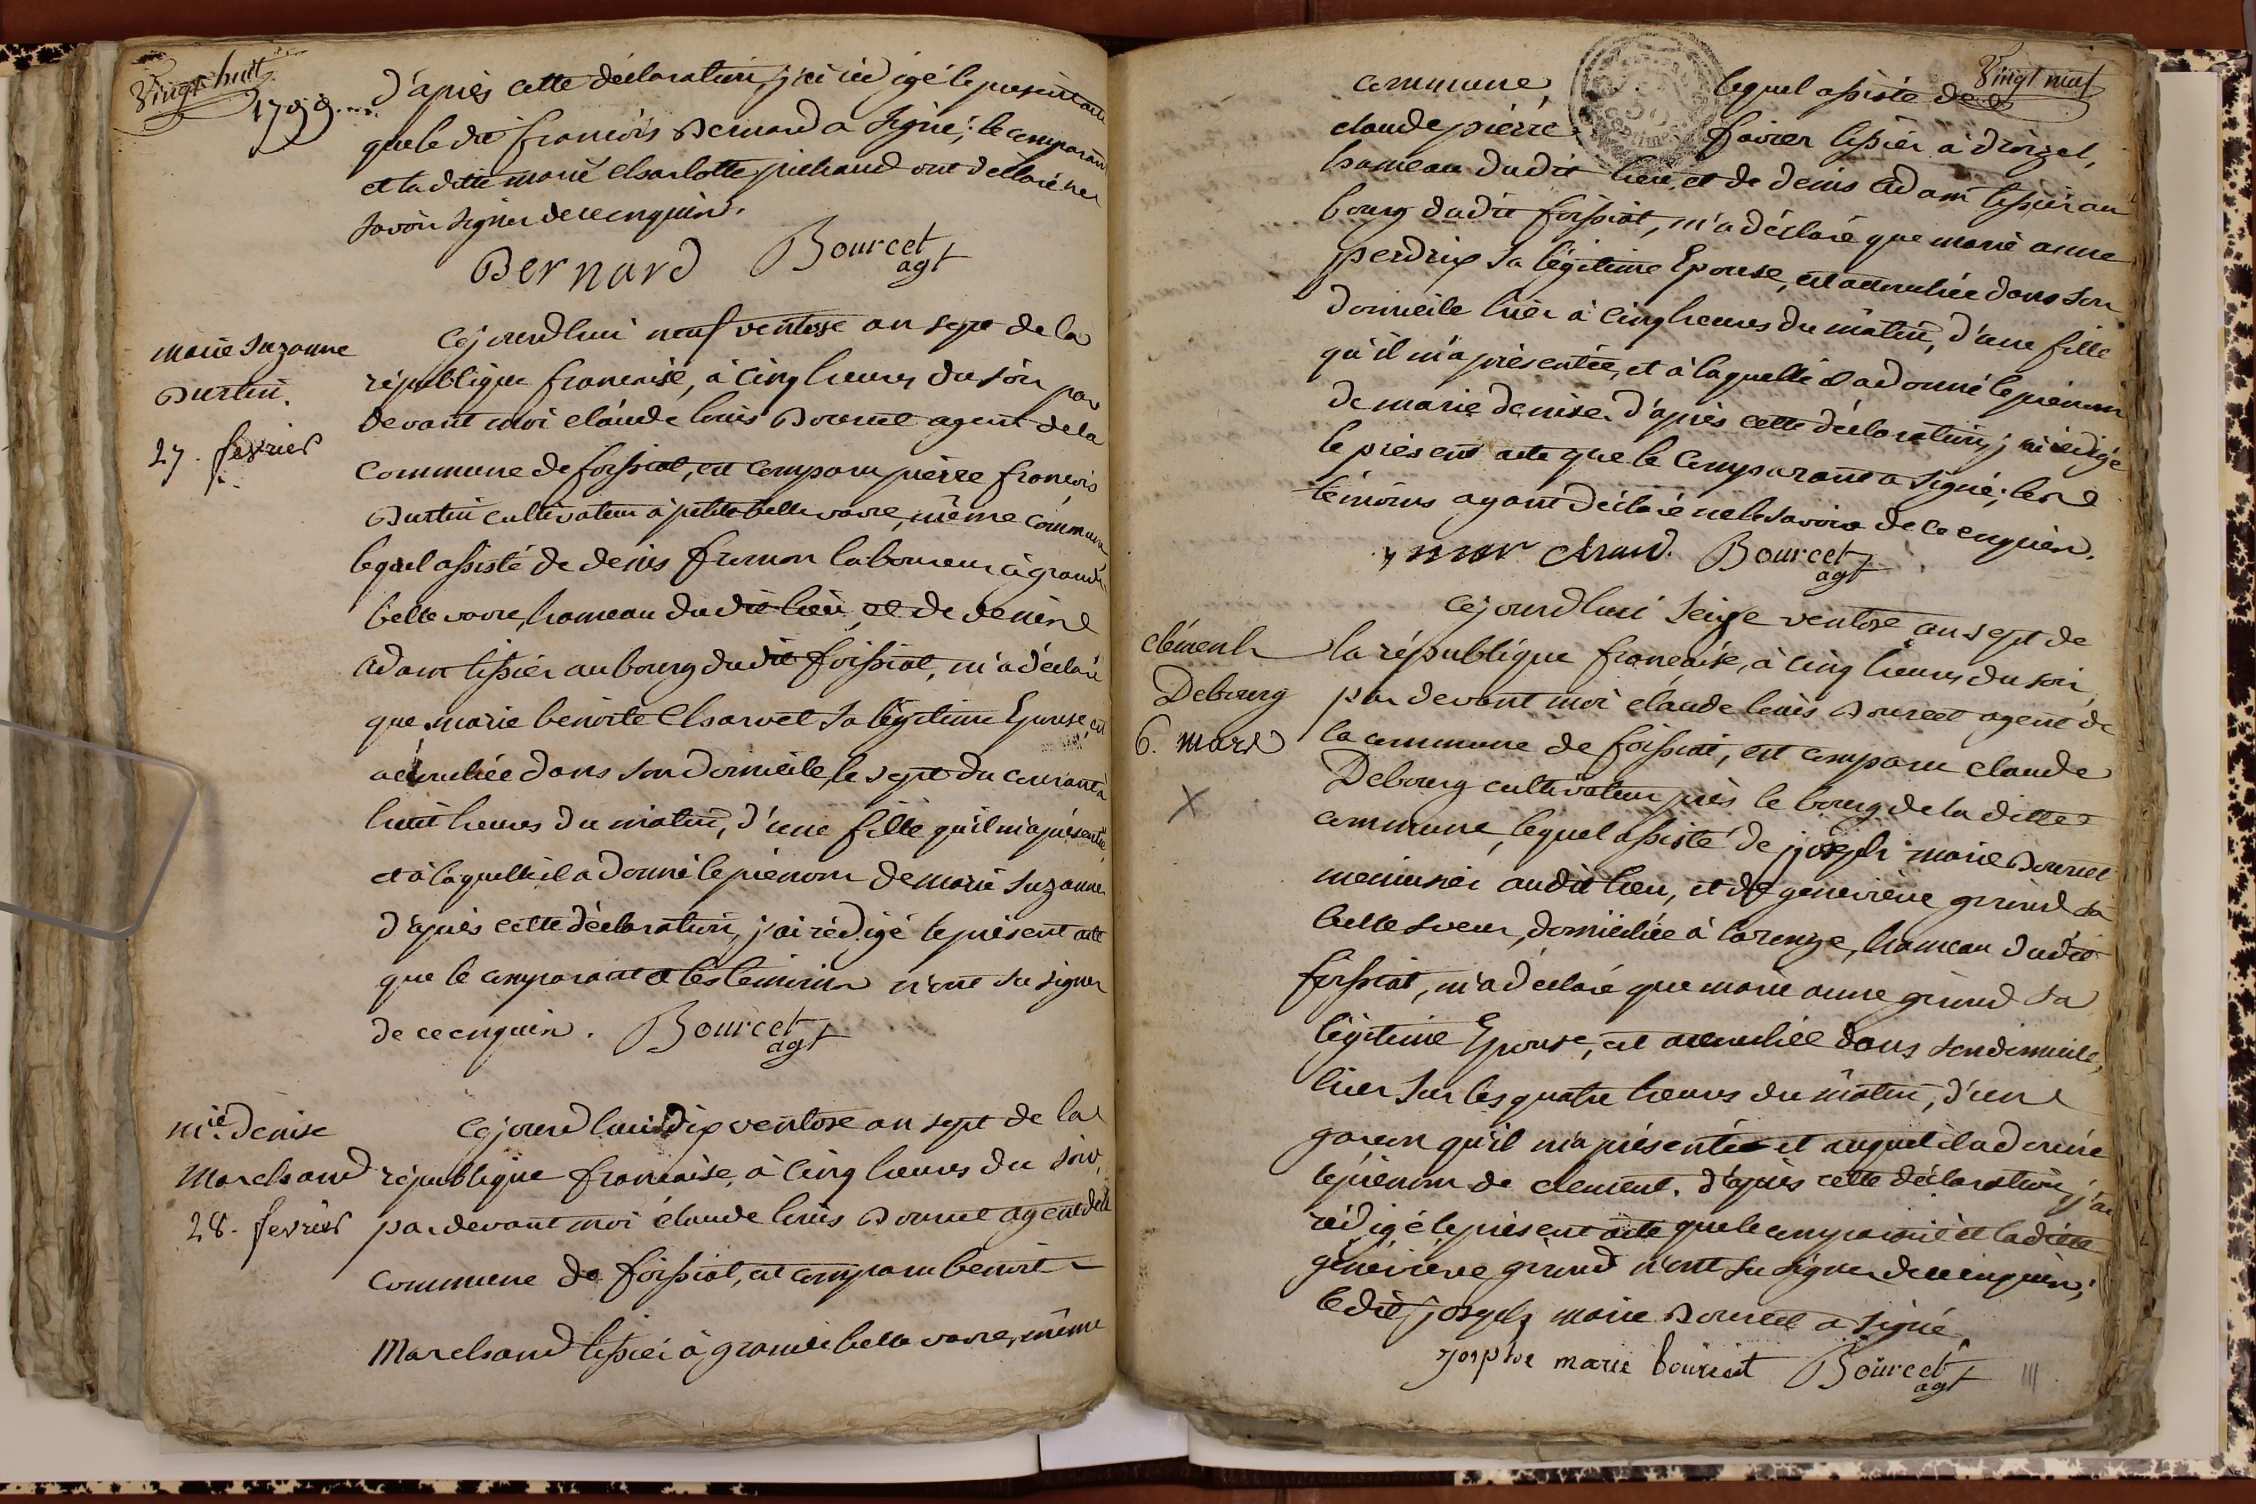 Vingt huit
1799....
d'après cette déclaration, j'ai rédigé le présent acte
que le dit francois Bernard a signé; le comparant
et la ditte marie Charlotte pichaud ont déclaré ne
savoir signer de ce enquin.
Bernard Bourcet
agt
marie suzanne
Durtin.
27. fevrier
Cejourd'hui neuf ventose an sept de la
république francaise, à cinq heures du soir par
devant moi claude louis Bourcet agent de la
commune de foissiat, est comparu pierre francois
Durtin cultivateur à petite belle vavre, même commune
lequel assisté de denis laboureur à grande
belle vavre, hameau du dit lieu, et de denis
adam tissier au bourg du dit foissiat, m'a déclaré
que marie benoite Charvet sa légitime Epouse, est
accouchée dans son domicile, le sept du courant à
huit heures du matin, d'une fille qu'il m'a présentée,
et à laquelle il a donné le prénom de marie suzanne
d'après cette déclaration, j'ai rédigé le présent acte
que le comparant et les témoins n'ont su signer
de ce enquin. Bourcet
agt
mie. denise
Marchand
28. fevrier
Cejourd'hui dix ventose an sept de la
république francaise, à cinq heures du soir,
par devant moi claude louis Bourcet agent de la
commune de foissiat, est comparu benoit
Marchand tissier à grande belle vavre, même
Vingt neuf
commune, lequel assisté de
claude pierre favier tissier à
hameau du dit lieu, et de denis adam tissier au
bourg du dit foissiat, m'a déclaré que marie anne
perdrix sa légitime Epouse, est accouchée dans son
domicile hier à cinq heures du matin, d'une fille
qu'il m'a présentée, et à laquelle il a donné le prénom
de marie denise. d'après cette déclaration, j'ai rédigé
le présent acte que le comparant a signé; les
témoins ayant déclaré ne le savoir de ce enquin.
Bourcet
agt
clément
Debourg
6. mars
X
Cejourd'hui seize ventose an sept de
la république francaise, à cinq heures du soir,
par devant moi claude louis Bourcet agent de
la commune de foissiat, est comparu claude
Debourg cultivateur près le bourg de la ditte
commune, lequel assisté de joseph marie Bourcet
menuisier au dit lieu, et de geneviève girind sa
belle soeur, domiciliée à hameau du dit
foissiat, m'a déclaré que marie anne girind sa
légitime Epouse, est accouchée dans son domicile,
hier sur les quatre heures du matin, d'un
garcon qu'il m'a présenté et auquel il a donné
le prénom de clément. d'après cette déclaration j'ai
rédigé le présent acte que le comparant et la ditte
geneviève girind n'ont su signer de ce enquin;
le dit joseph marie Bourcet a signé.
marie bourcet Bourcet
agt